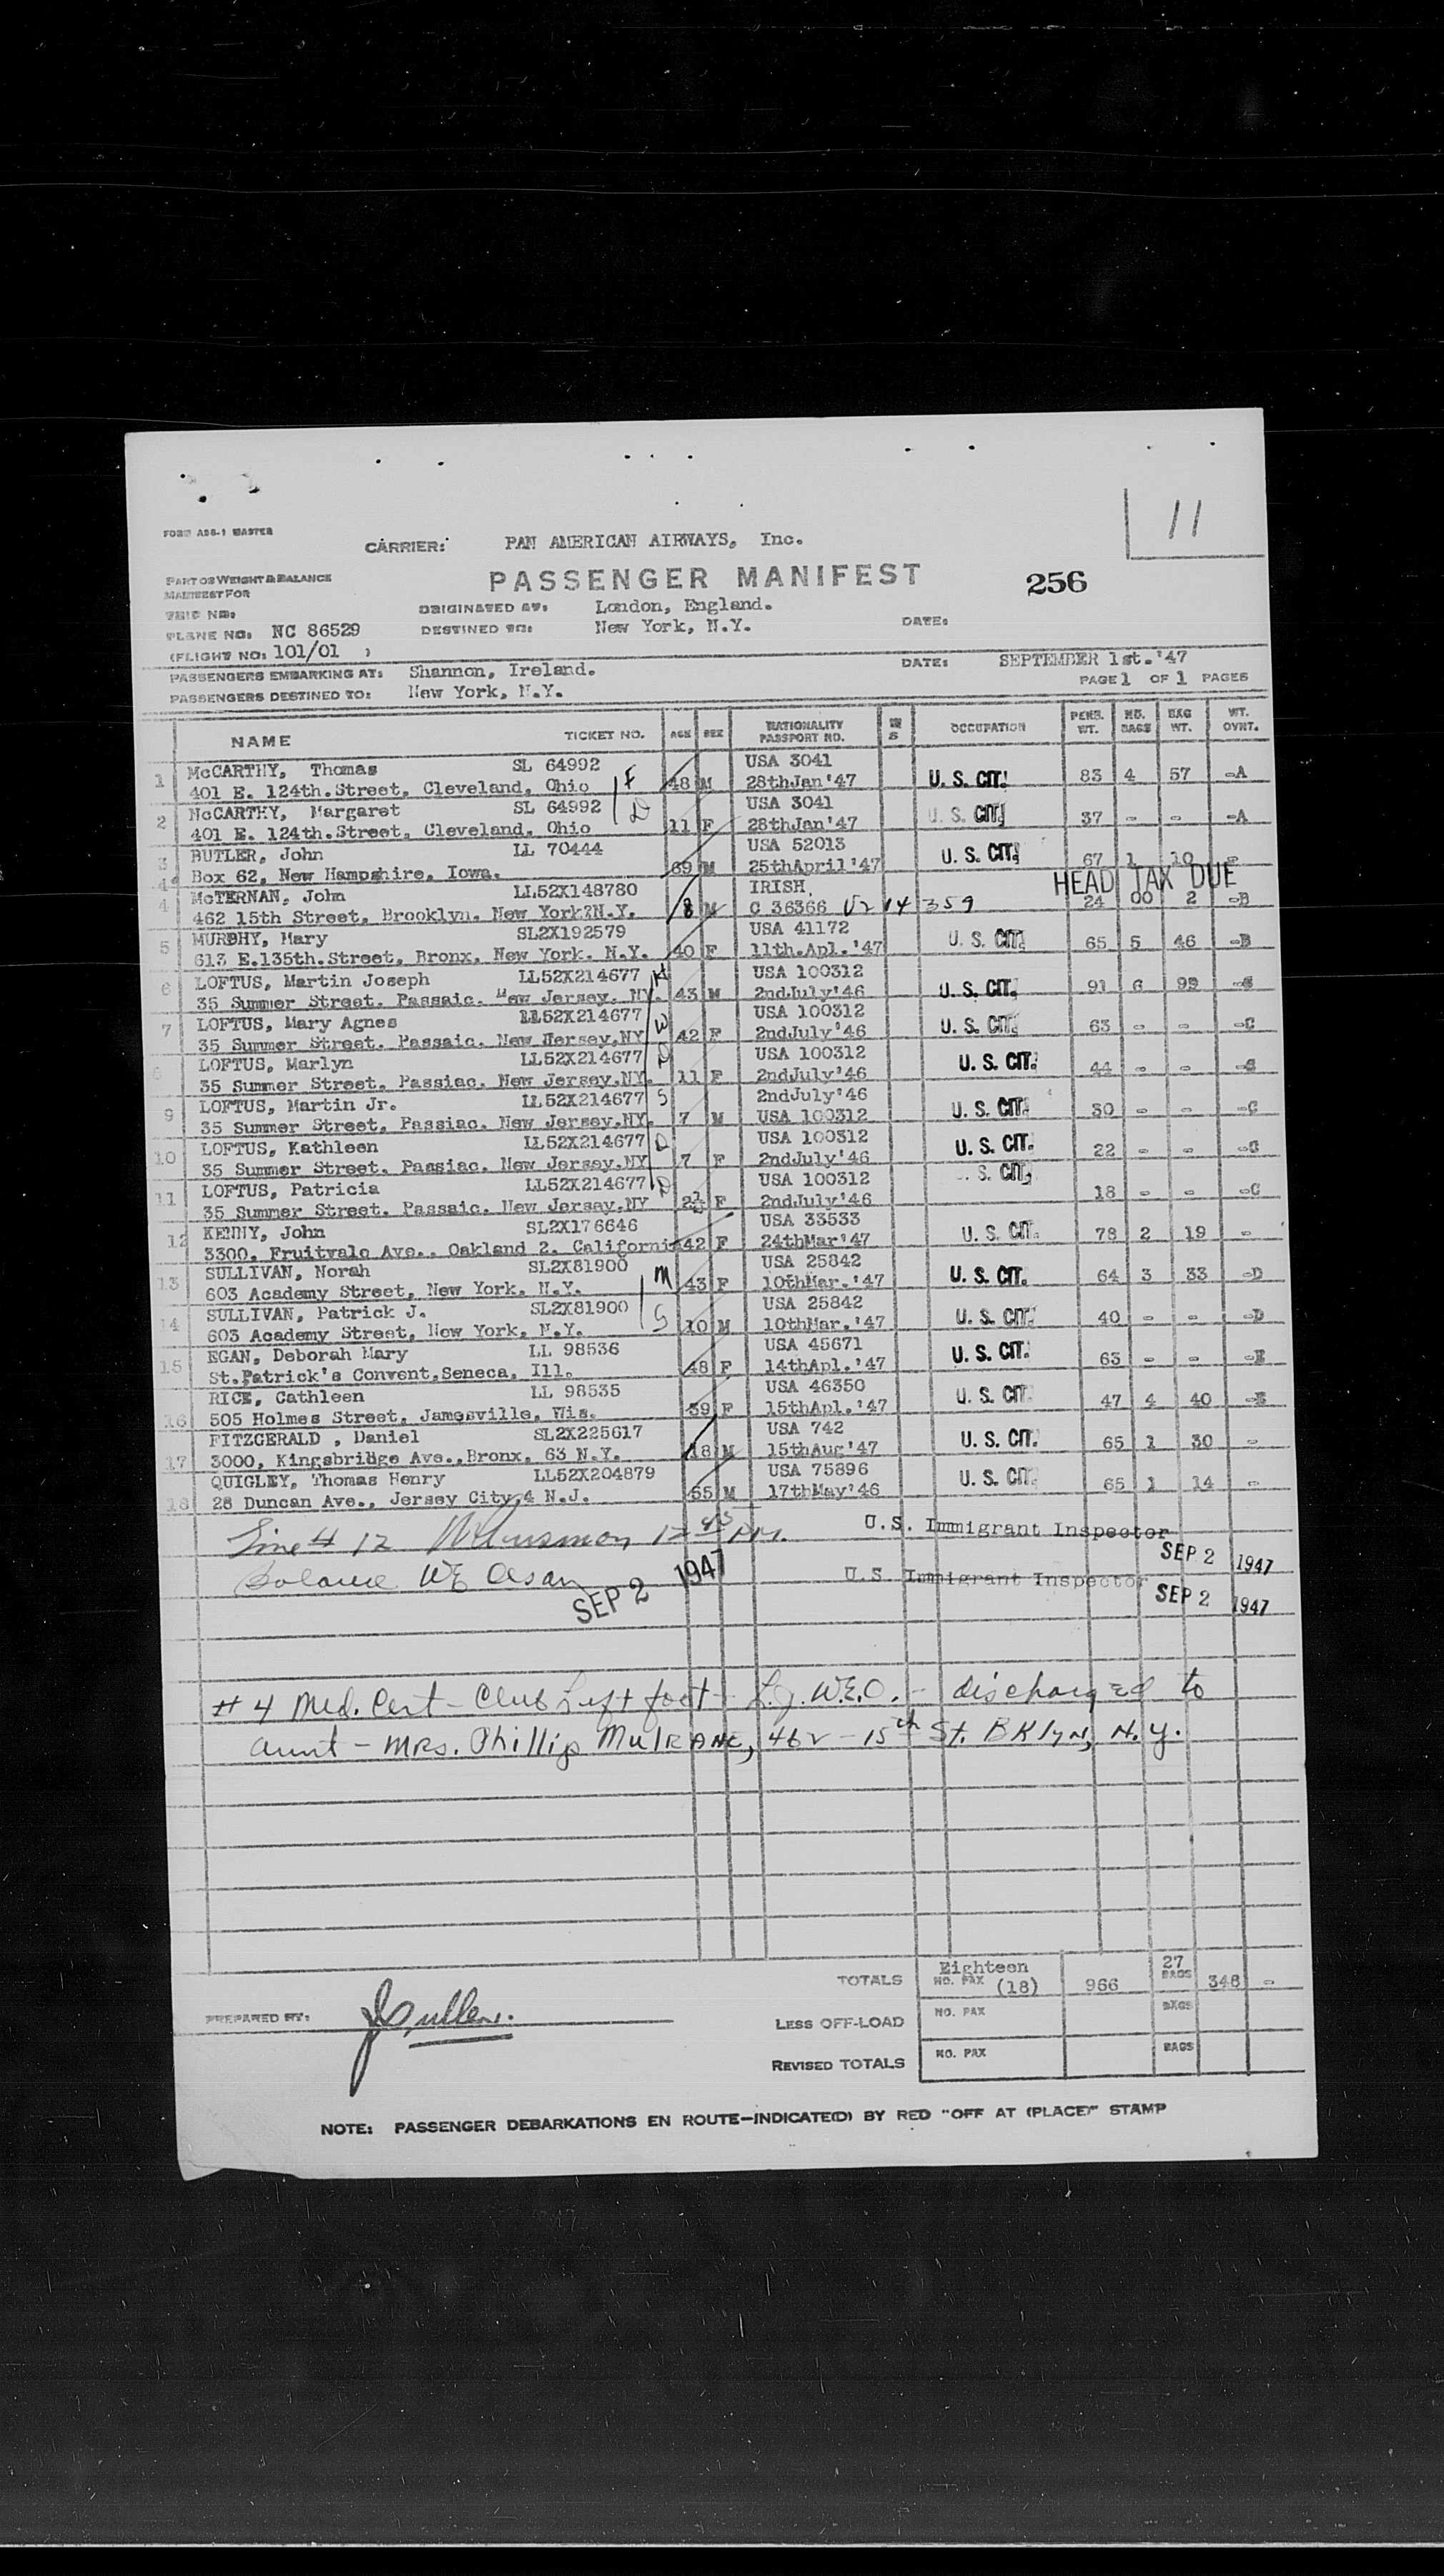 11
FORM ADS-1 MASTER
CARRIER: PAN AMERICAN AIRWAYS, Inc.
PASSENGER MANIFEST 256
PART OF WEIGHT & BALANCE
MANIFEST FOR
TRIP NO:
ORIGINATED AT: London, England.
PLANE NO: NC 86529 DESTINED TO: New York, N.Y. DATE:
(FLIGHT NO: 101/01 )
PASSENGERS EMBARKING AT: Shannon, Ireland. DATE: SEPTEMBER 1st.'47
PASSENGERS DESTINED TO: New York, N.Y. PAGE 1 OF 1 PAGES
NAME TICKET NO. AGE SEX NATIONALITY PASSPORT NO. OCCUPATION PERS. WT. NO. BAGS BAG WT. WT. OVNT.
1 McCARTHY, Thomas SL 64992 USA 3041
401 E. 124th.Street, Cleveland, Ohio F 48 M 28thJan'47 U. S. CIT. 83 4 57 -A
2 McCARTHY, Margaret SL 64992 D USA 3041
401 E. 124th.Street, Cleveland. Ohio 11 F 28thJan'47 U. S. CIT. 37 - - -A
3 BUTLER, John LL 70444 USA 52013
Box 62, New Hampshire, Iowa. 69 M 25thApril'47 U. S. CIT. 67 1 10 -
HEAD TAX DUE
4 McTERNAN, John LL52X148780 IRISH.
462 15th Street, Brooklyn. New York?N.Y. 8 M C 36366 V2 14 359 24 00 2 -B
5 MURPHY, Mary SL2X192579 USA 41172
613 E.135th.Street, Bronx, New York. N.Y. 40 F 11th.Apl.'47 U. S. CIT. 65 5 46 -B
6 LOFTUS, Martin Joseph LL52X214677 H USA 100312
35 Summer Street. Passaic. New Jersey. NY. 43 M 2ndJuly'46 U. S. CIT. 91 6 99 -C
7 LOFTUS, Mary Agnes LL52X214677 W USA 100312
35 Summer Street. Passaic. New Jersey.NY 42 F 2ndJuly'46 U. S. CIT. 63 - - -C
8 LOFTUS, Marlyn LL52X214677 D USA 100312
35 Summer Street. Passiac. New Jersey.NY. 11 F 2ndJuly'46 U. S. CIT. 44 - - -C
9 LOFTUS, Martin Jr. LL52X214677 S 2ndJuly'46
35 Summer Street. Passiac. New Jersey.NY. 7 M USA 100312 U. S. CIT. 30 - - -C
10 LOFTUS, Kathleen LL52X214677 D USA 100312
35 Summer Street. Passiac. New Jersey.NY 7 F 2ndJuly'46 U. S. CIT. 22 - - -C
11 LOFTUS, Patricia LL52X214677 D USA 100312 S. CIT.
35 Summer Street. Passaic. New Jersey.NY 2½ F 2ndJuly'46 18 - - -C
12 KENNY, John SL2X176646 USA 33533
3300, Fruitvale Ave., Oakland 2. Californi 42 F 24thMar'47 U. S. CIT. 78 2 19 -
13 SULLIVAN, Norah SL2X81900 M USA 25842
603 Academy Street, New York. N.Y. 43 F 10thMar.'47 U. S. CIT. 64 3 33 -D
14 SULLIVAN, Patrick J. SL2X81900 S USA 25842
603 Academy Street, New York, N.Y. 10 M 10thMar.'47 U. S. CIT. 40 - - -D
15 EGAN, Deborah Mary LL 98536 USA 45671
St.Patrick's Convent,Seneca, Ill. 48 F 14thApl.'47 U. S. CIT. 63 - - -E
16 RICE, Cathleen LL 98535 USA 46350
505 Holmes Street, Jamesville, Wis. 39 F 15thApl.'47 U. S. CIT. 47 4 40 -E
17 FITZGERALD , Daniel SL2X225617 USA 742
3000, Kingsbridge Ave.,Bronx, 63 N.Y. 18 M 15thAug'47 U. S. CIT. 65 1 30 -
18 QUIGLEY, Thomas Henry LL52X204879 USA 75896
28 Duncan Ave., Jersey City,4 N.J. 55 M 17thMay'46 U. S. CIT. 65 1 14 -
Line # 12 12 45 PM. U.S. Immigrant Inspector SEP 2 1947
Balance WE Olsan SEP 2 1947 U.S. Immigrant Inspector SEP 2 1947
# 4 Med. Cert - Club Left foot - L.J. W.E.O. - discharged to
aunt - MRS. Phillip MulRANE, 462 - 15th St. BKlyN, N.Y.
TOTALS Eighteen NO. PAX (18) 966 27 BAGS 348 -
PREPARED BY: JCullen.
LESS OFF-LOAD NO. PAX BAGS
REVISED TOTALS NO. PAX BAGS
NOTE: PASSENGER DEBARKATIONS EN ROUTE-INDICATE(D) BY RED "OFF AT (PLACE)" STAMP